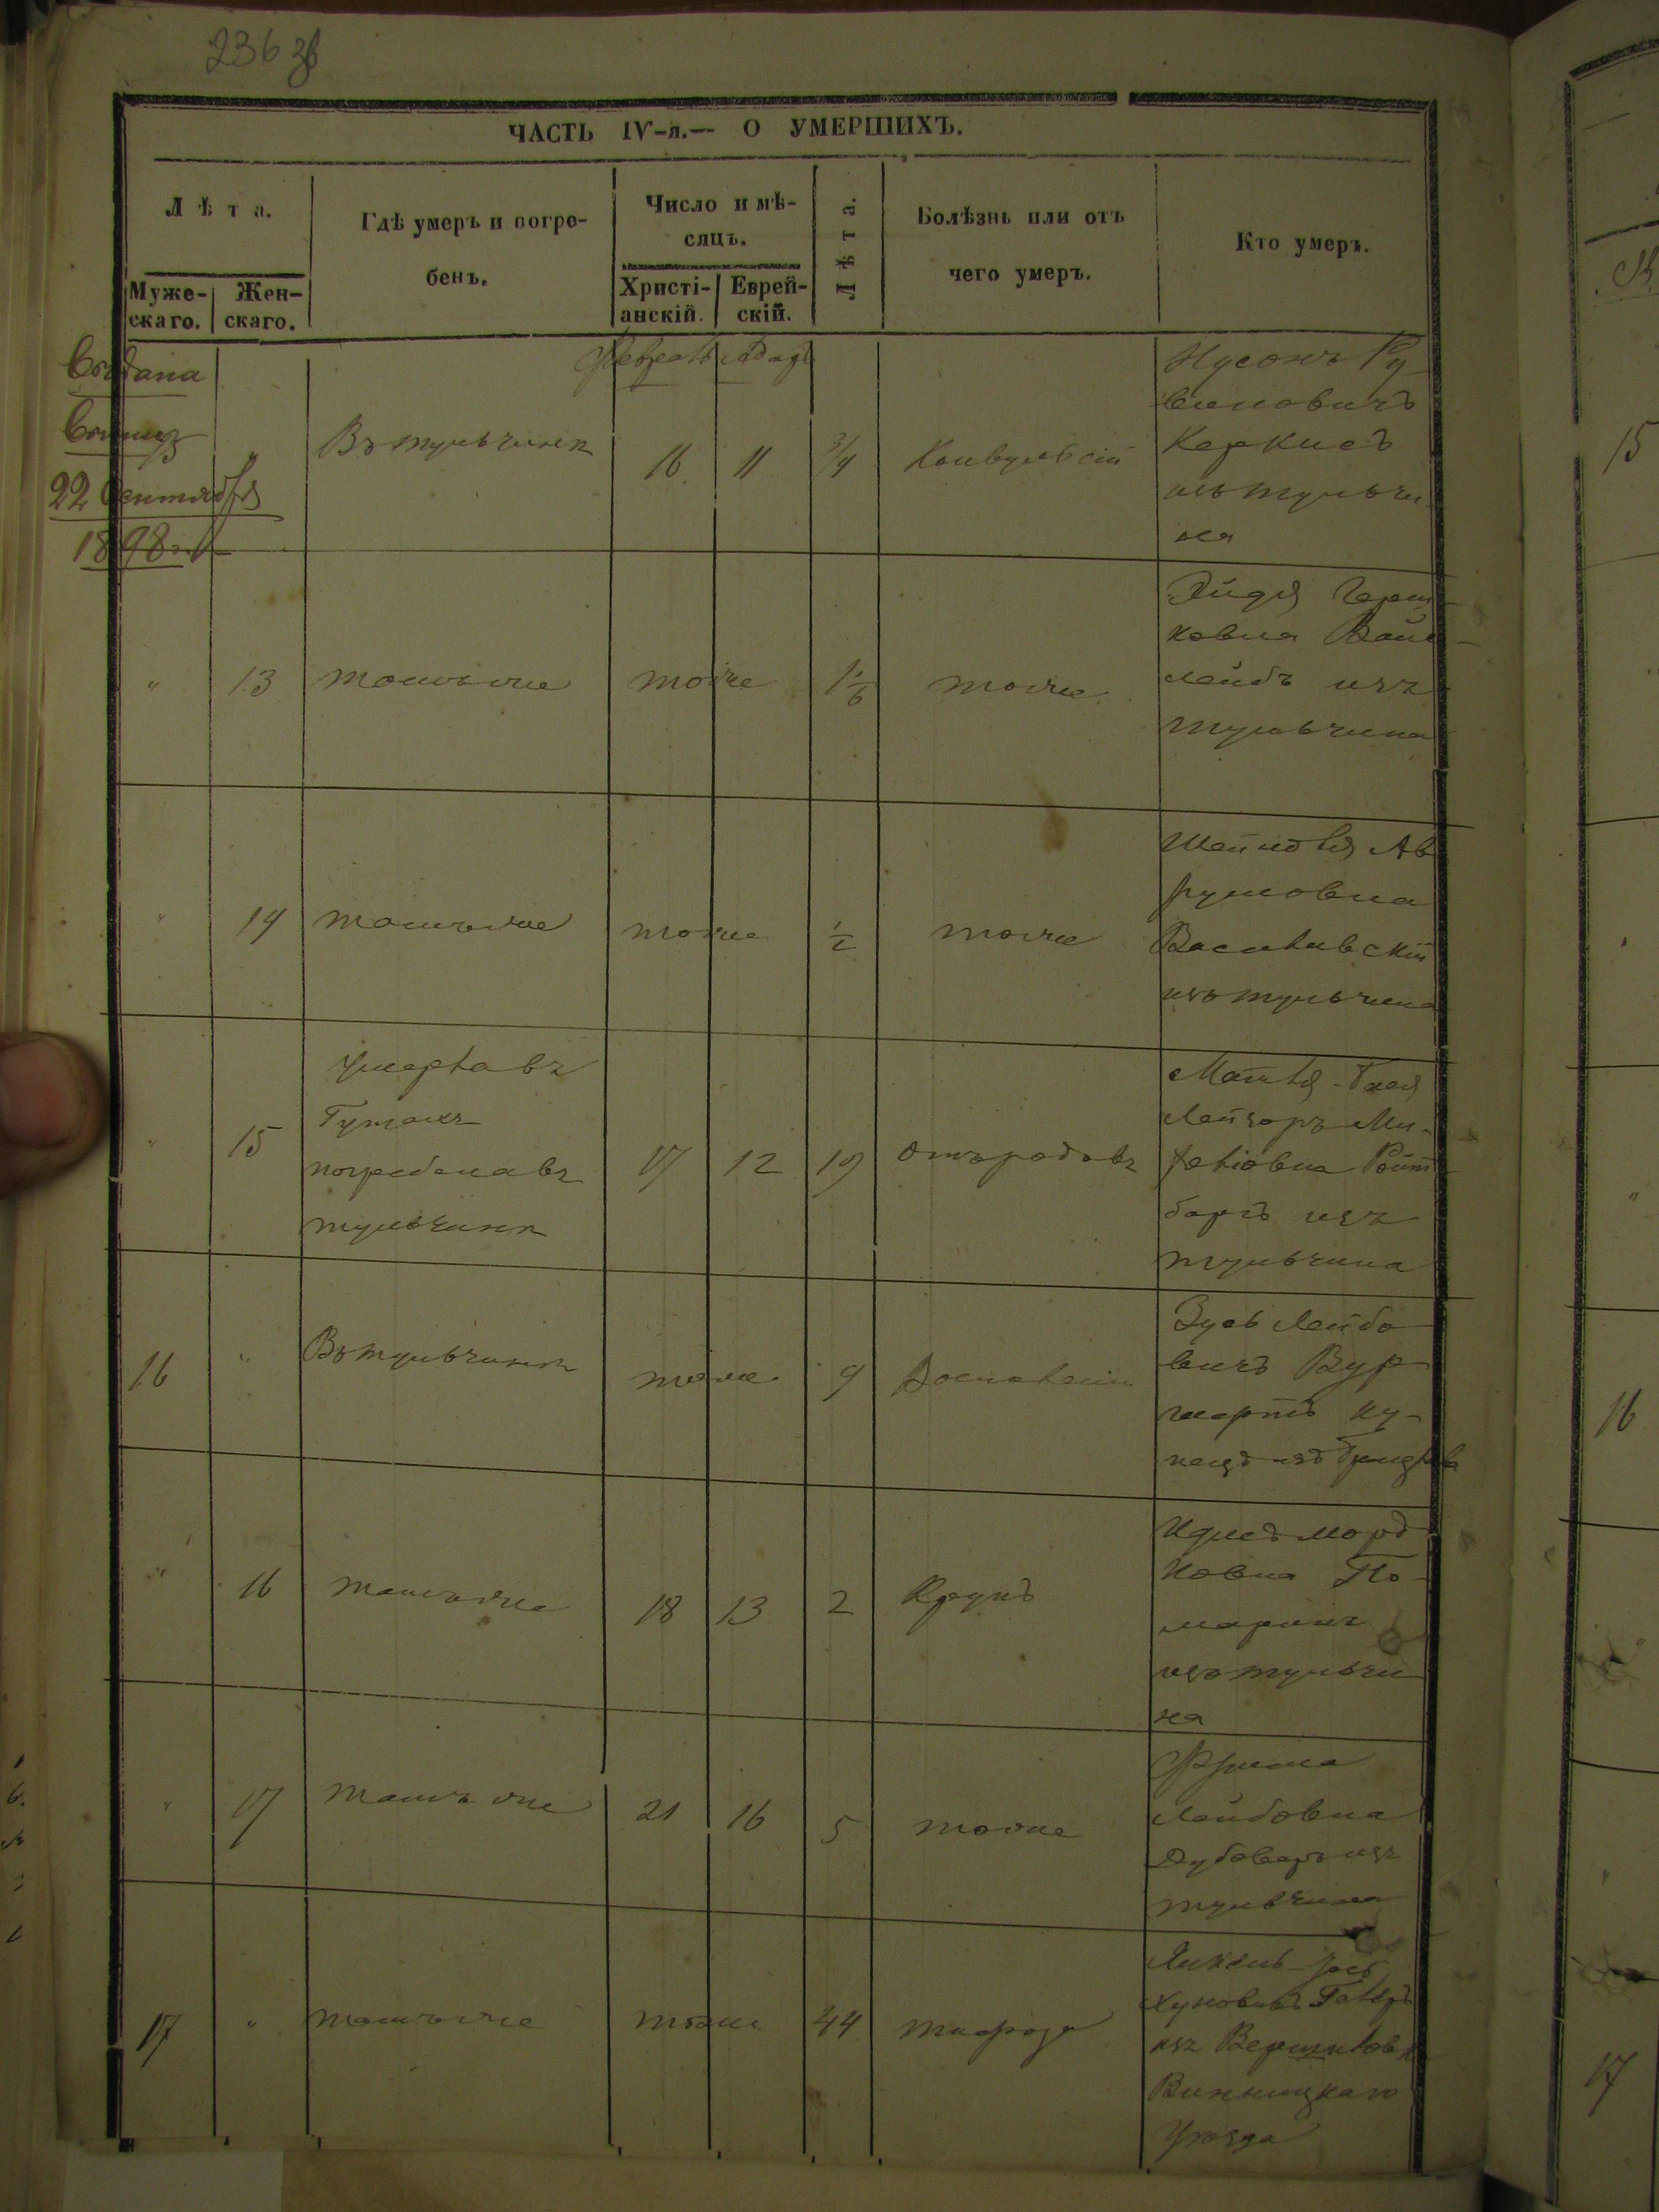 236 зв
ЧАСТЬ IV-я.— О УМЕРШИХЪ.
Лѣта.
Муже-
скаго.
Жен-
скаго.
Гдѣ умеръ и погре-
бенъ.
Число и мѣ-
сяцъ.
Христі-
анскій.
Еврей-
скій.
Лѣта.
Болѣзнь или отъ
чего умеръ.
Кто умеръ.
Февраль Адаръ
Выдана
22 Сентября
1898 г.
"
Въ тульчинѣ
16
11
3/4
Конвульсій
Нусонъ Ру
виновичъ
Керкисъ
изъ тульчи
на
"
13
тамъ же
тоже
1/6
тоже
Эйдя Герш
ковна Вайс
лейбъ изъ
тульчина
"
14
тамъ же
тоже
1/2
тоже
Шейндля Ав
румовна
Василивскій
изъ тульчина
"
15
Умерла въ
погребена въ
тульчинѣ
17
12
19
отъ родовъ
Лейзоръ Ми-
изъ
тульчина
16
"
Въ тульчинѣ
тоже
9
Воспаленіи
Зусь Лейбо
вичъ Вур
гафтъ ку-
пецъ изъ Брацлава
"
16
тамъ же
18
13
2
Крупъ
Морд
ковна По-
маранъ
изъ тульчи
на
"
17
тамъ же
21
16
5
тоже
Фрима
Лейбовна
Дубоверъ изъ
тульчина
17
"
тамъ же
тоже
44
тифоза
Янкель-Іось
Хуновичъ
изъ
Винницкаго
Уѣзда
15
16
17